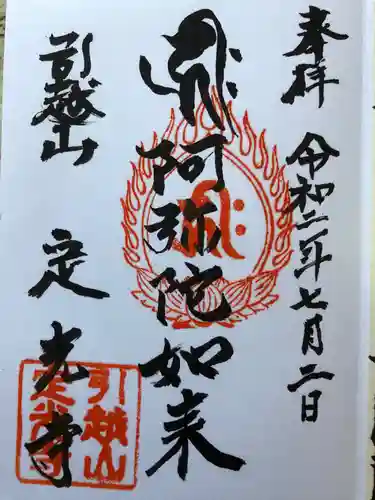 奉拝
令和二年七月二日
阿弥陀如来
引越山
定光寺
引越山
定光寺